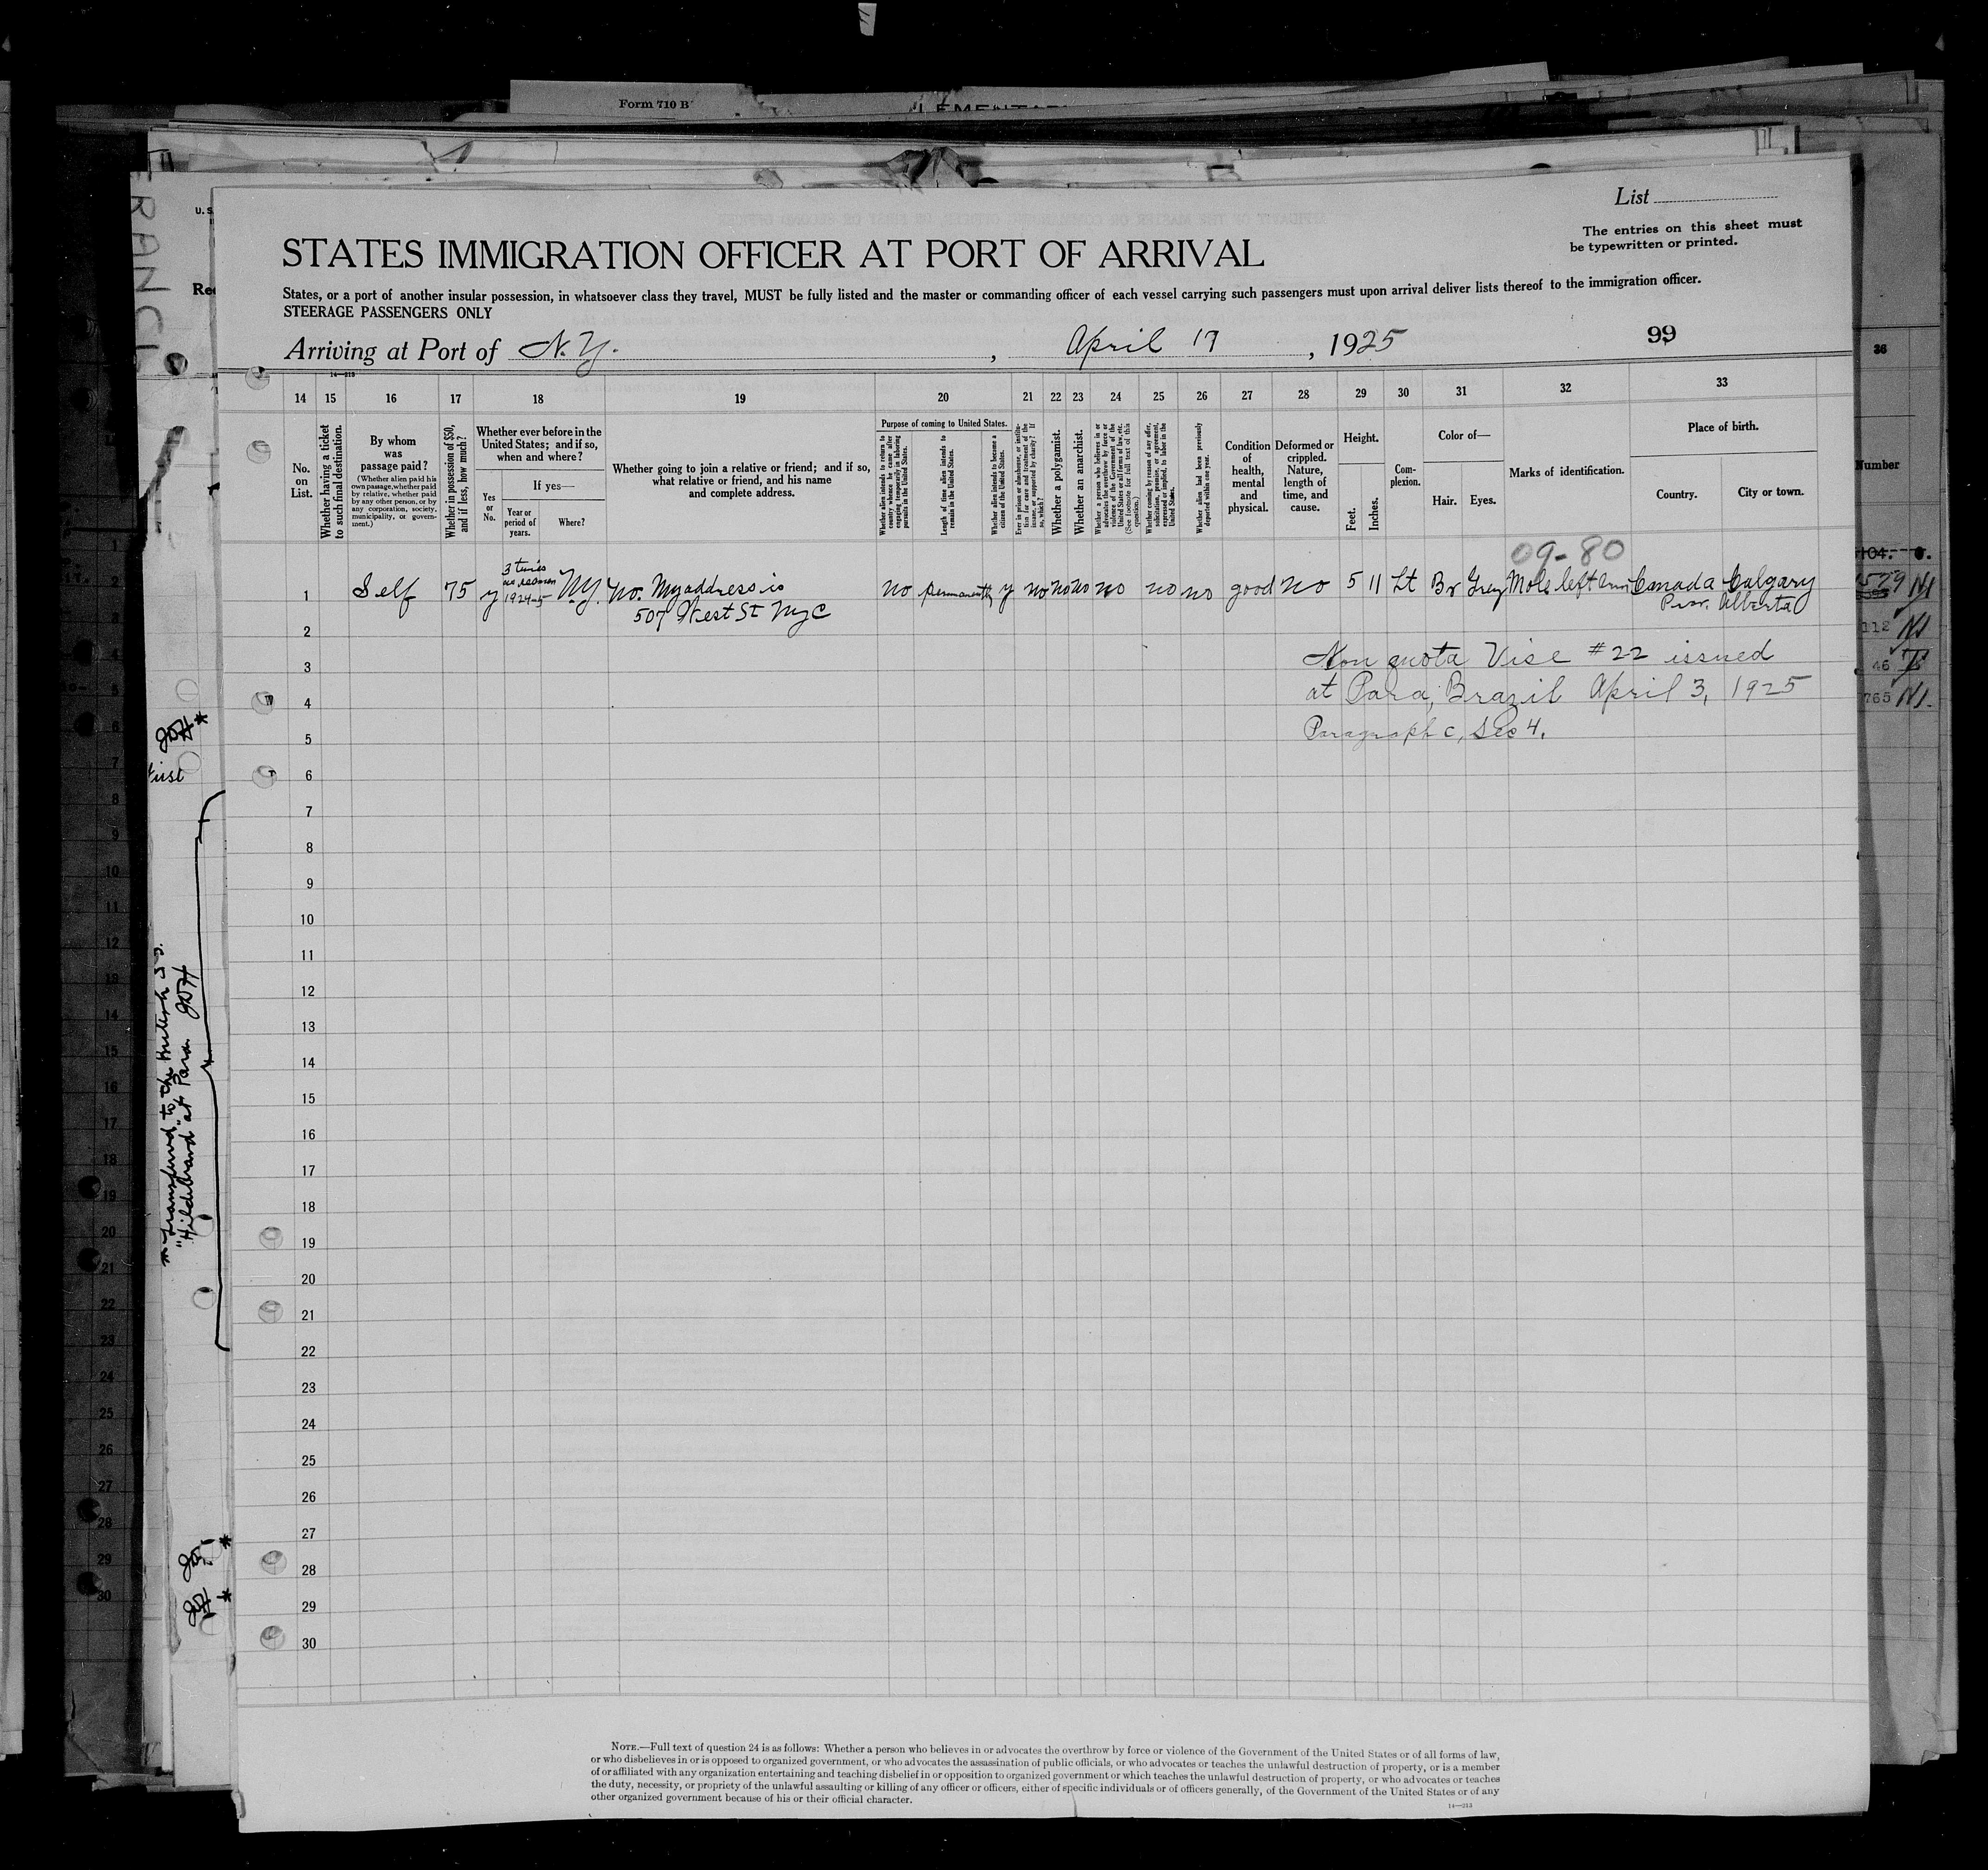 Form 710 B
List
The entries on this sheet must
be typewritten or printed.
STATES IMMIGRATION OFFICER AT PORT OF ARRIVAL
States, or a port of another insular possession, in whatsoever class they travel, MUST be fully listed and the master or commanding officer of each vessel carrying such passengers must upon arrival deliver lists thereof to the immigration officer.
STEERAGE PASSENGERS ONLY
Arriving at Port of N.Y. , April 17 , 1925
99
14—213
14 15 16 17 18 19 20 21 22 23 24 25 26 27 28 29 30 31 32 33
No. on List.
Whether having a ticket to such final destination.
By whom was passage paid?
(Whether alien paid his own passage, whether paid by relative, whether paid by any other person, or by any corporation, society, municipality, or government.)
Whether in possession of $50, and if less, how much?
Whether ever before in the United States; and if so, when and where?
Yes or No.
If yes—
Year or period of years.
Where?
Whether going to join a relative or friend; and if so, what relative or friend, and his name and complete address.
Purpose of coming to United States.
Whether alien intends to return to country whence he came after engaging temporarily in laboring pursuits in the United States.
Length of time alien intends to remain in the United States.
Whether alien intends to become a citizen of the United States.
Ever in prison or almshouse, or institution for care and treatment of the insane, or supported by charity? If so, which?
Whether a polygamist.
Whether an anarchist.
Whether a person who believes in or advocates the overthrow by force or violence of the Government of the United States or all forms of law, etc. (See footnote for full text of this question.)
Whether coming by reason of any offer, solicitation, promise, or agreement, expressed or implied, to labor in the United States.
Whether alien had been previously deported within one year.
Condition of health, mental and physical.
Deformed or crippled. Nature, length of time, and cause.
Height.
Feet.
Inches.
Complexion.
Color of—
Hair. Eyes.
Marks of identification.
Place of birth.
Country.
City or town.
09-80
1 Self 75 y 3 times 1924-5 N.Y. No. My address is no permanently y no no no no no no good no 5 11 Lt Br Grey Mole left arm Canada Calgary
507 West St NYC Prov. Alberta
2
3 Non quota Vise #22 issued
4 at Para, Brazil April 3, 1925
5 Paragraph c, Sec 4.
6
7
8
9
10
11
12
13
14
15
16
17
18
19
20
21
22
23
24
25
26
27
28
29
30
* Transferred to the British S.S.
"Hildebrand" at Para. JDH
36
Number
104.
112
46
765
NOTE.—Full text of question 24 is as follows: Whether a person who believes in or advocates the overthrow by force or violence of the Government of the United States or of all forms of law,
or who disbelieves in or is opposed to organized government, or who advocates the assassination of public officials, or who advocates or teaches the unlawful destruction of property, or is a member
of or affiliated with any organization entertaining and teaching disbelief in or opposition to organized government or which teaches the unlawful destruction of property, or who advocates or teaches
the duty, necessity, or propriety of the unlawful assaulting or killing of any officer or officers, either of specific individuals or of officers generally, of the Government of the United States or of any
other organized government because of his or their official character.
14—213